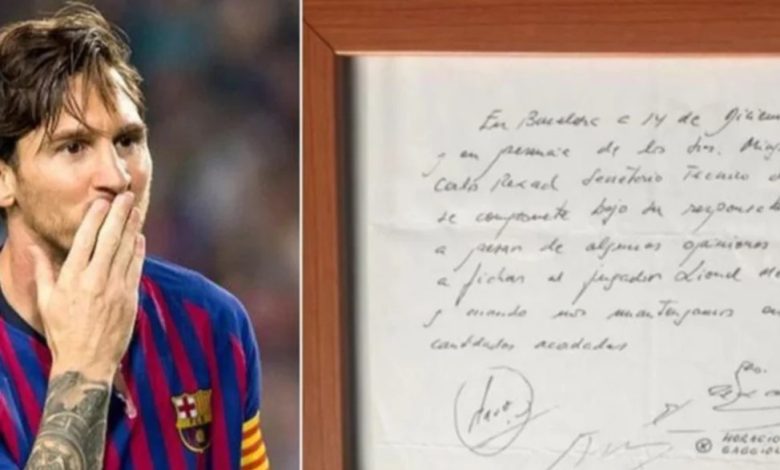 En Barcelona a 14 de Diciem
y en presencia de los Srs. Ming
Carlos Rexach Secretario Técnico d
se compromete bajo su responsab
a pesar de algunas opiniones
a fichar al jugador Lionel Me
y cuando nos mantengamos en
cantidades acordadas
HORACIO
GAGGIOL